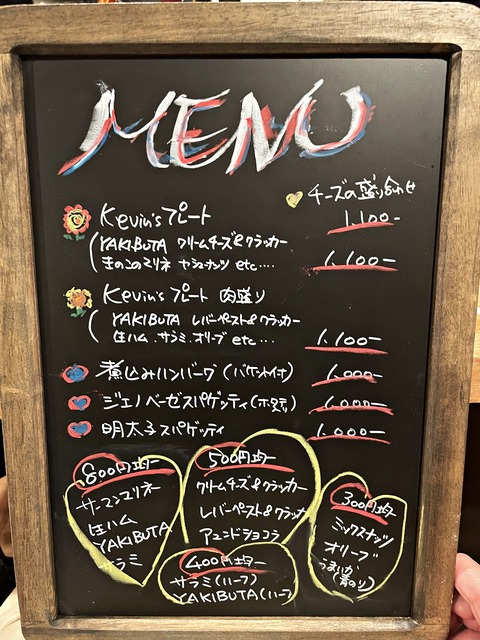 MENU
チーズの盛り合わせ
1,100-
Kevin'sプレート
(YAKIBUTA クリームチーズ&クラッカー
きのこのマリネ カシューナッツ etc....
1,100-
Kevin'sプレート 肉盛り
(YAKIBUTA レバーペースト&クラッカー
生ハム.サラミ.オリーブ etc...
1,100-
煮込みハンバーグ(バケット付)
1,000-
ジェノベーゼスパゲッティ(ホタテ)
1,000-
明太子スパゲッティ
1,000-
800円均一
サーモンマリネー
生ハム
YAKIBUTA
サラミ
500円均一
クリームチーズ&クラッカー
レバーペースト&クラッカー
アーモンドショコラ
400円均一
サラミ(ハーフ)
YAKIBUTA(ハーフ
300円均一
ミックスナッツ
オリーブ
うまいか
(青のり)